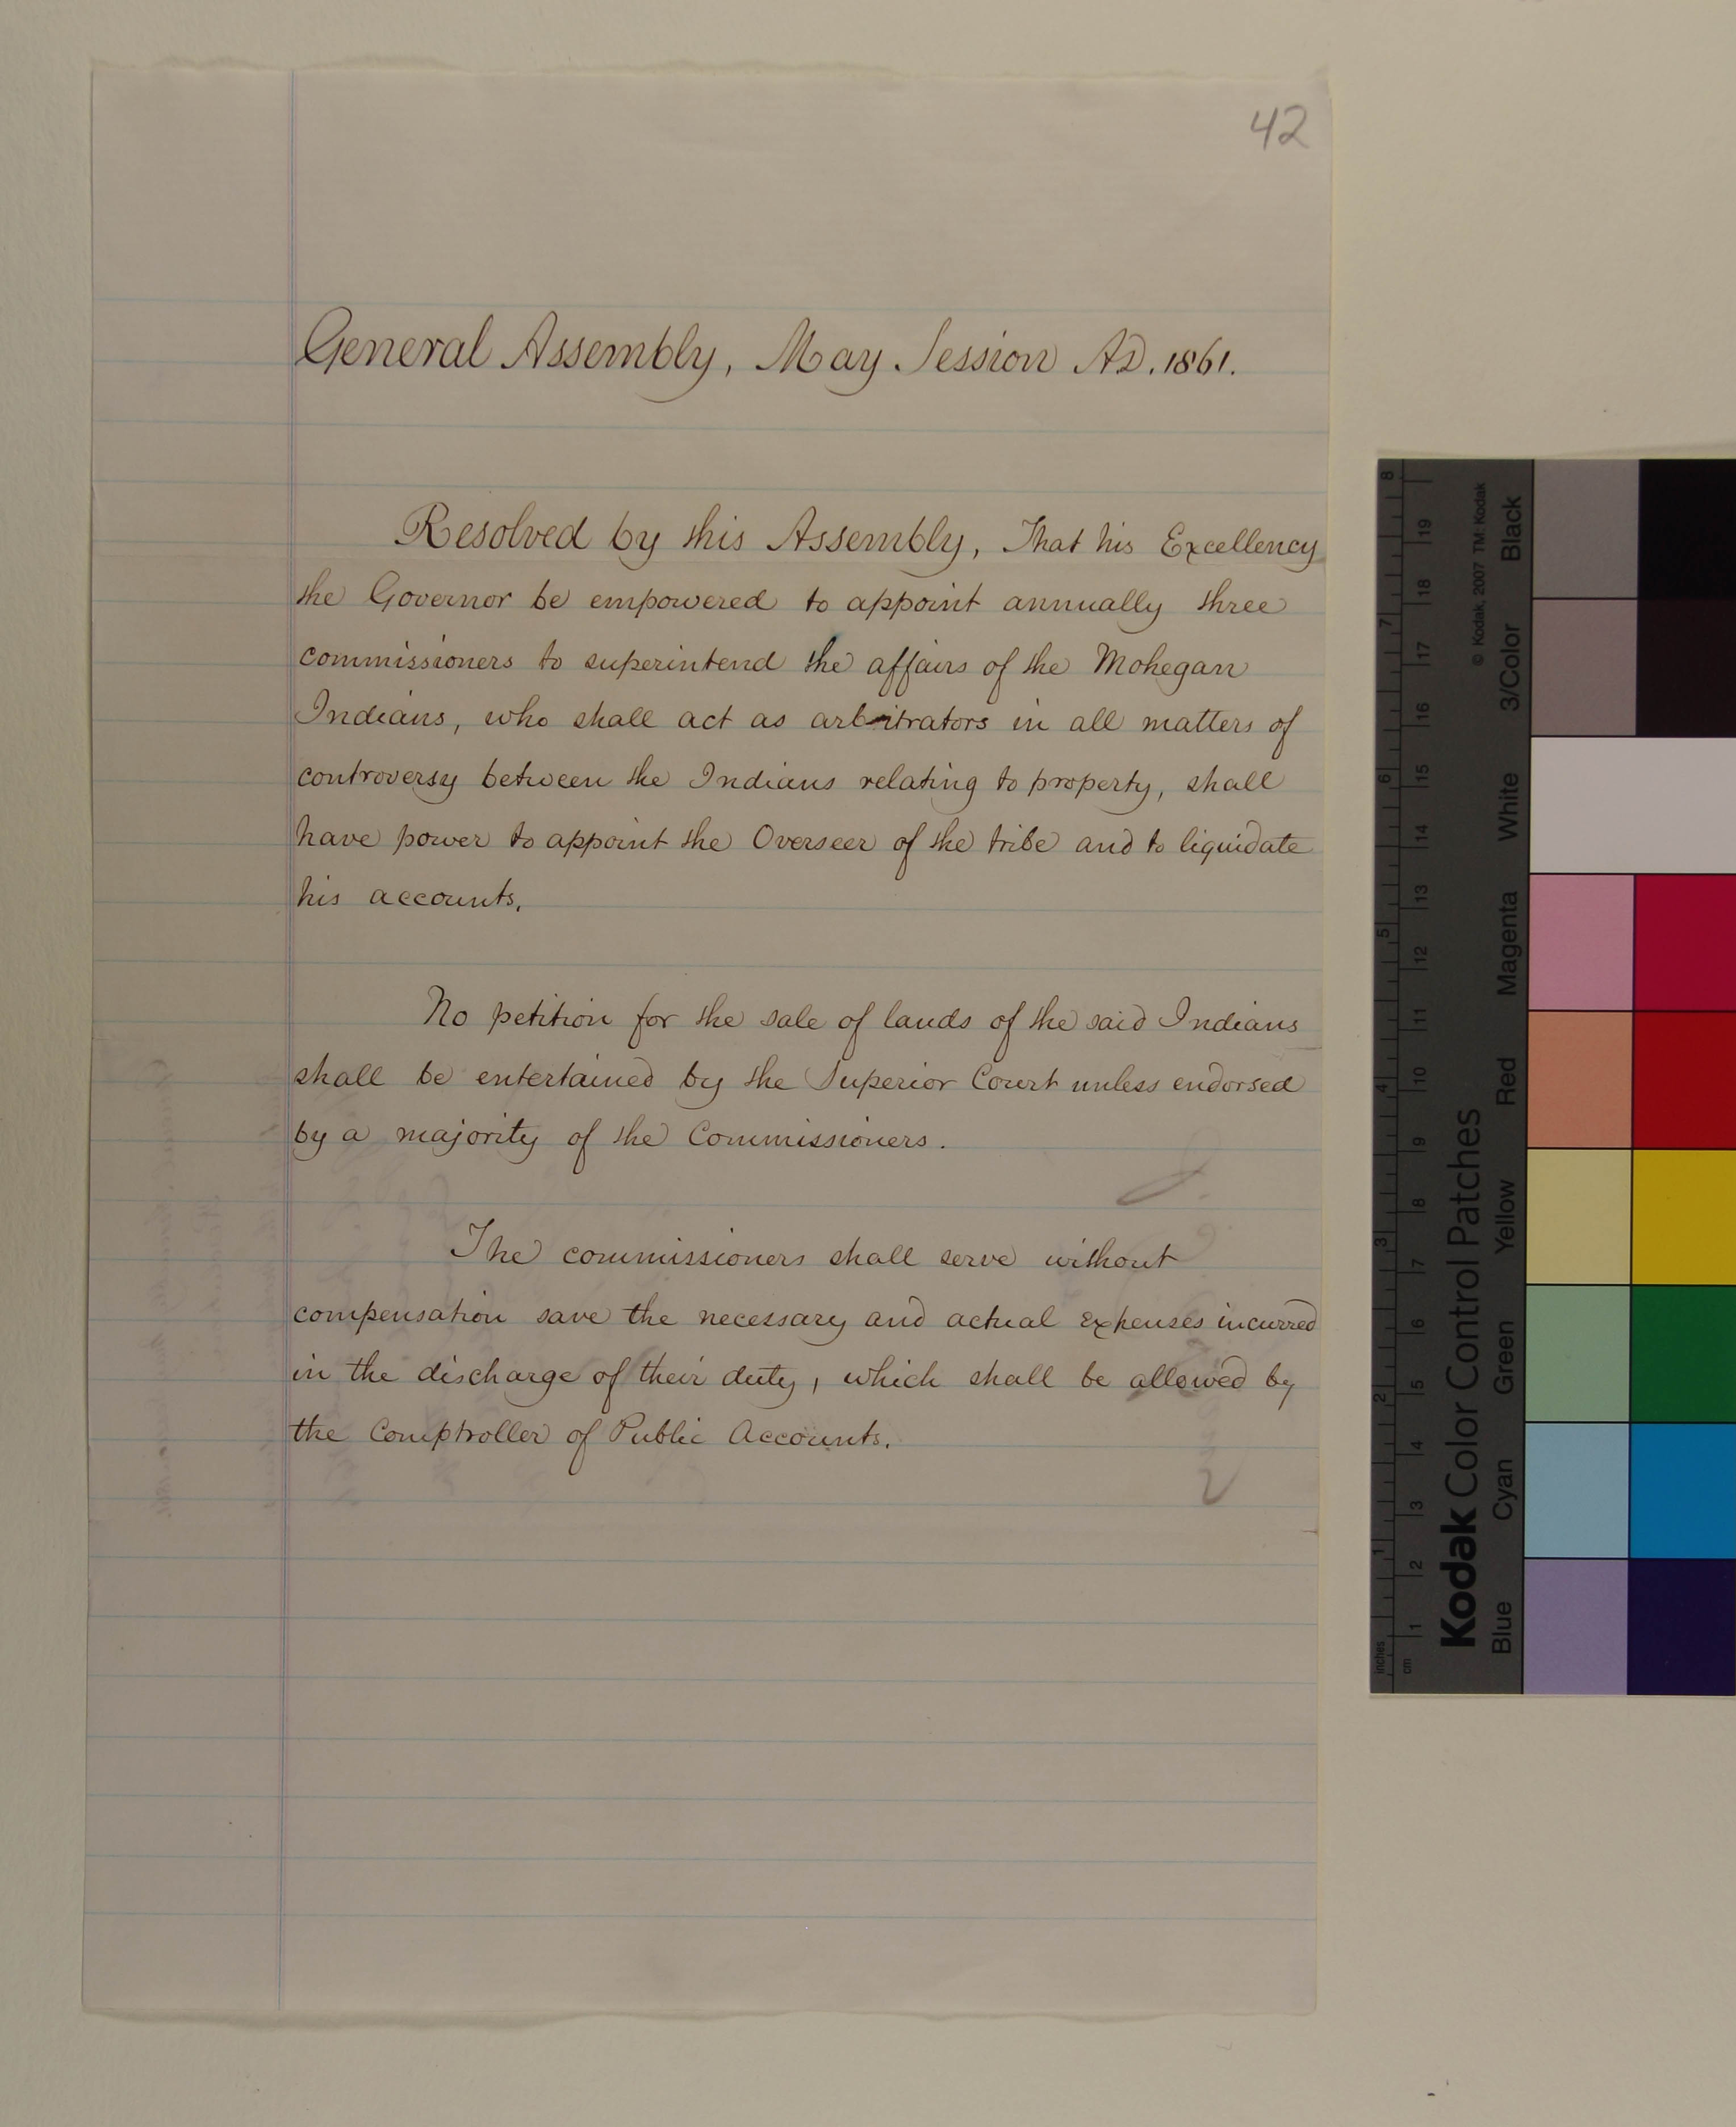 42
General Assembly, May Session AD. 1861.
Resolved by this Assembly, That his Excellency
the Governor be empowered to appoint annually three
commissioners to superintend the affairs of the Mohegan
Indians, who shall act as arbitrators in all matters of
controversy between the Indians relating to property, shall
have power to appoint the Overseer of the tribe and to liquidate
his accounts.
No petition for the sale of lands of the said Indians
shall be entertained by the Superior Court unless endorsed
by a majority of the Commissioners.
The commissioners shall serve without
compensation save the necessary and actual expenses incurred
in the discharge of their duty, which shall be allowed by
the Comptroller of Public Accounts.
Kodak Color Control Patches
© Kodak, 2007 TM: Kodak
Blue Cyan Green Yellow Red Magenta White 3/Color Black
inches 1 2 3 4 5 6 7 8
cm 1 2 3 4 5 6 7 8 9 10 11 12 13 14 15 16 17 18 19